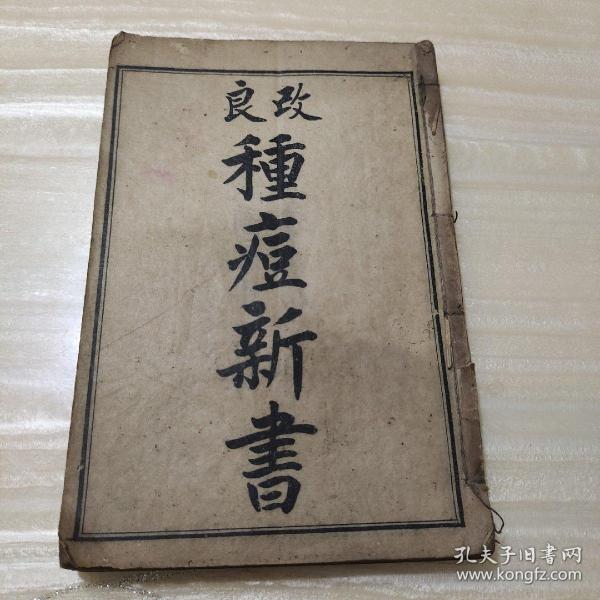 改良
種痘新書
孔夫子旧书网
www.kongfz.com